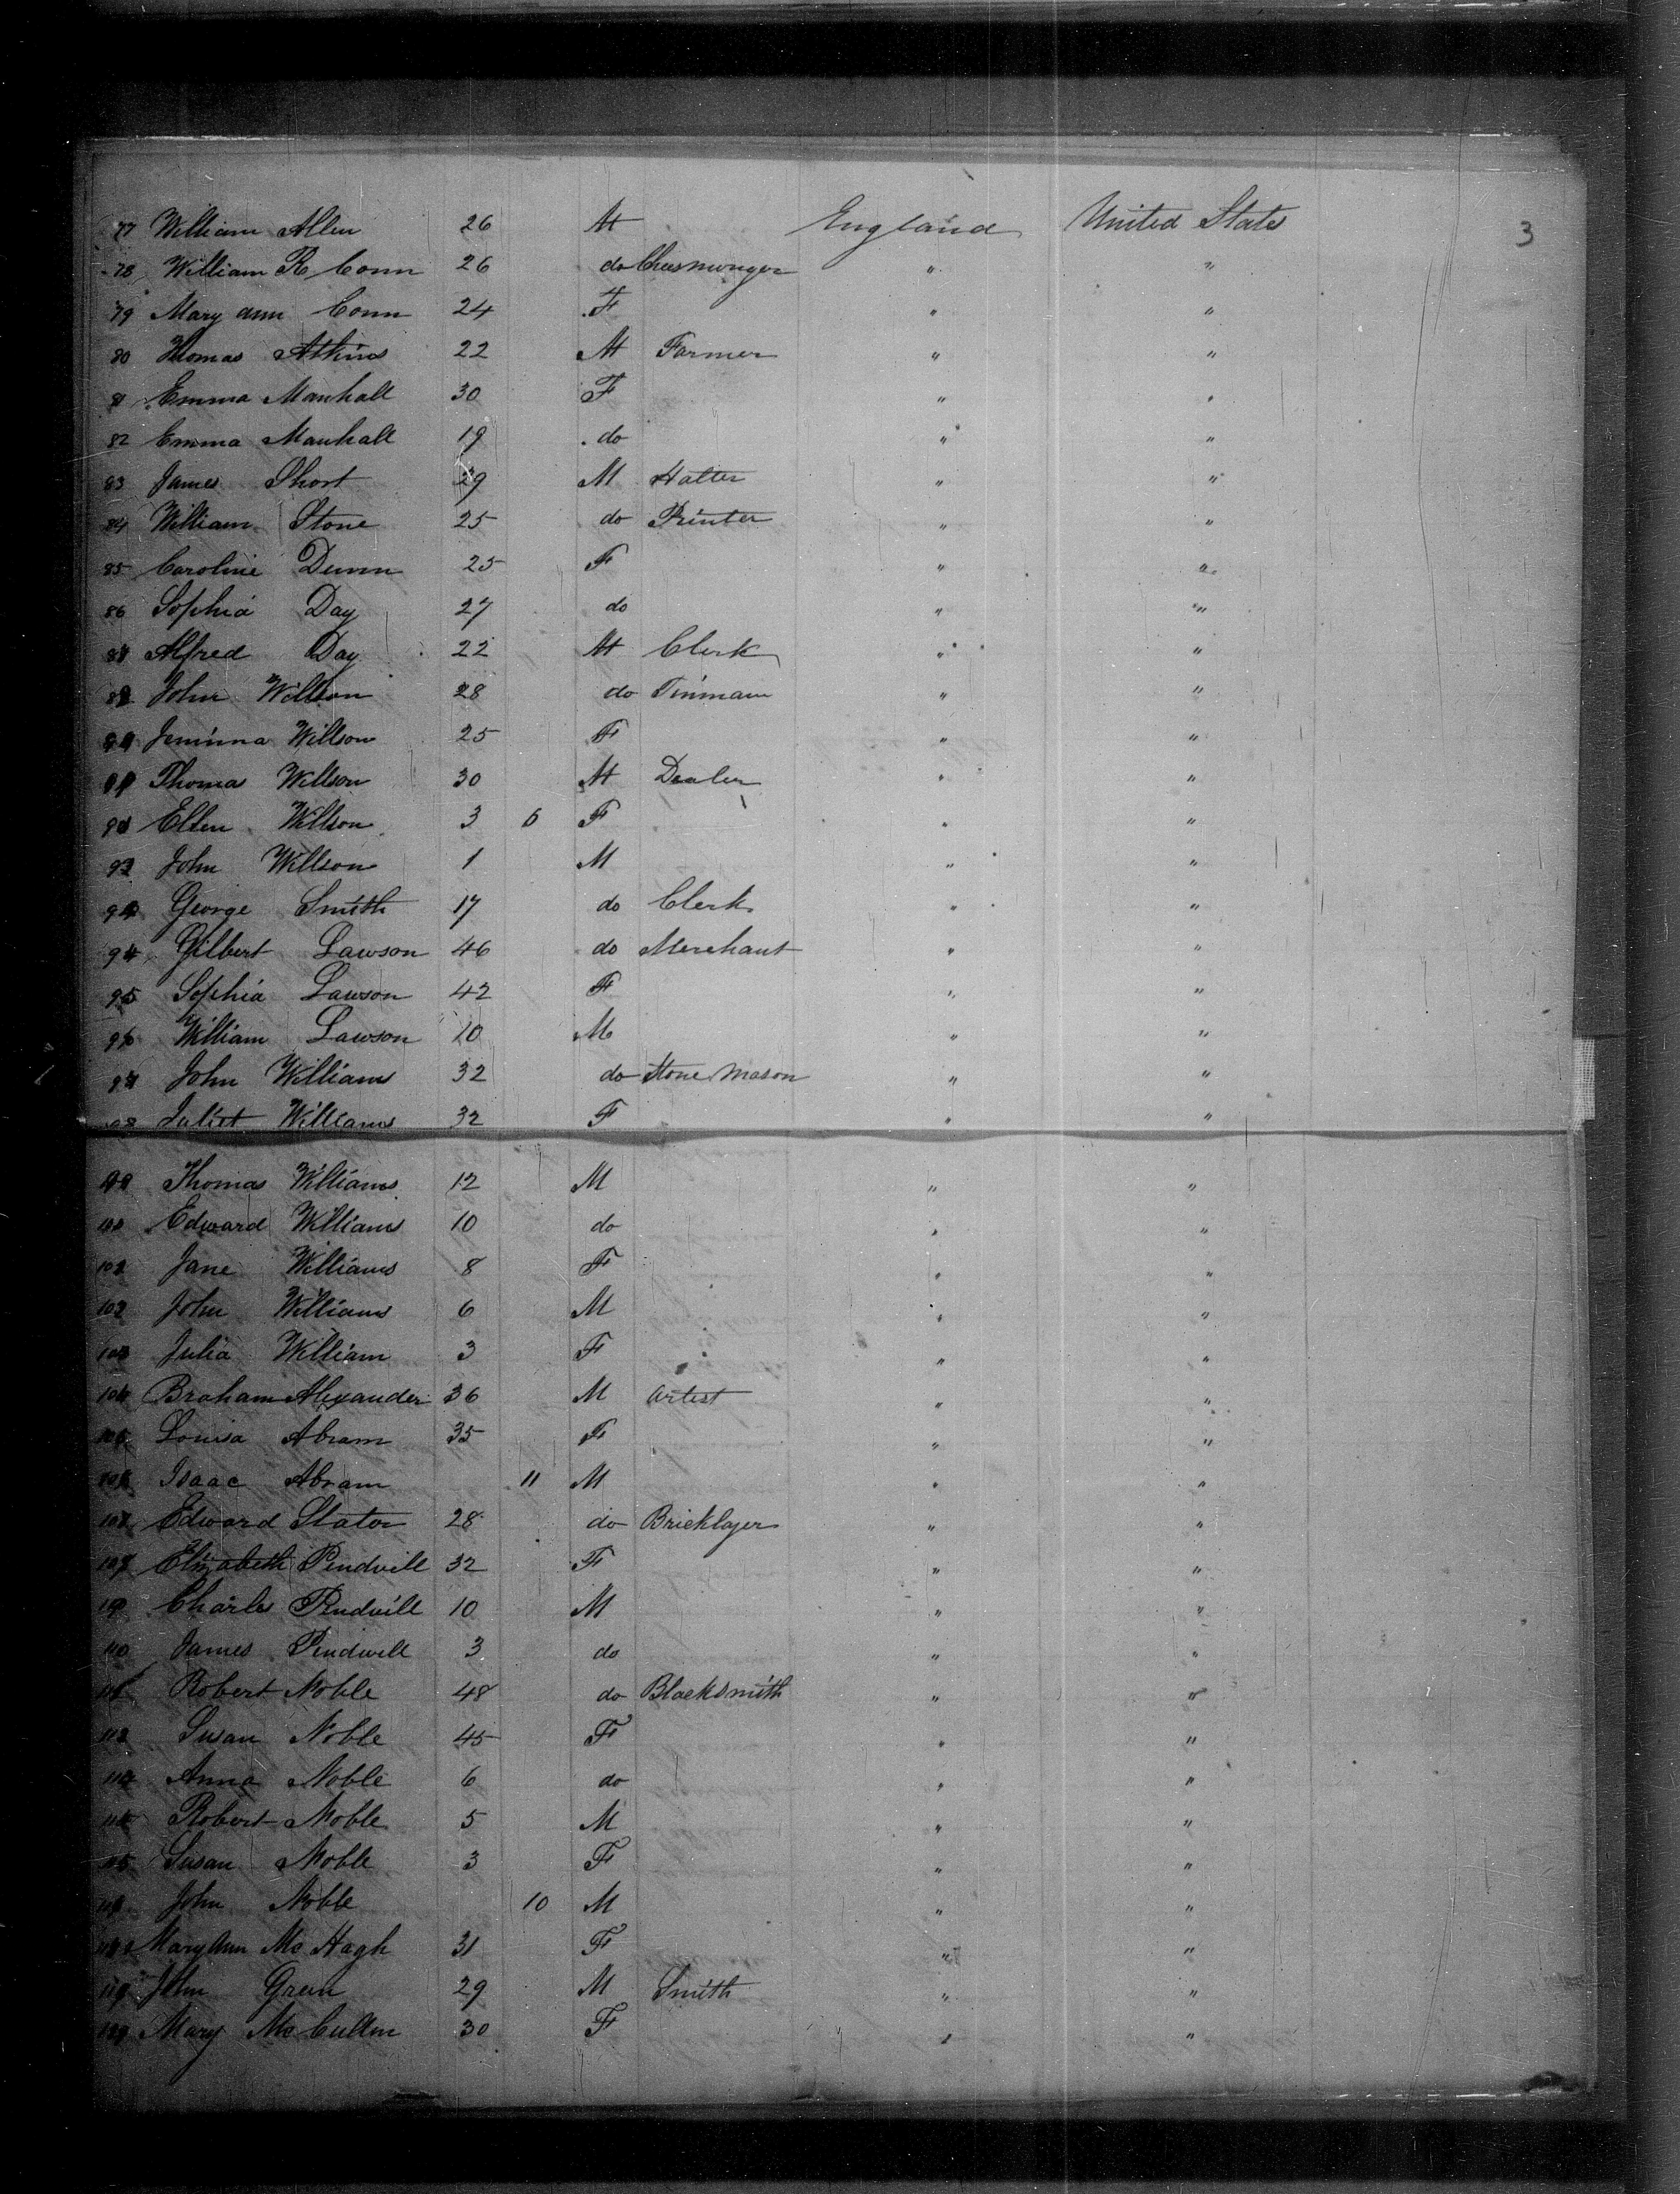 3
77 William Allen 26 M England United States
78 William R Conn 26 do Cheesmunger " "
79 Mary ann Conn 24 F " "
80 Thomas Atkins 22 M Farmer " "
81 Emma Manhall 30 F " "
82 Emma Manhall 19 do " "
83 James Short 29 M Hatter " "
84 William Stone 25 do Printer " "
85 Caroline Dunn 25 F " "
86 Sophia Day 27 do " "
Alfred Day 22 M Clerk " "
John Willson 28 do Tinman " "
Jemima Willson 25 F " "
Thomas Willson 30 M Dealer " "
Ellen Willson 3 6 F " "
John Willson 1 M " "
George Smith 17 do Clerk " "
94 Gilbert Lawson 46 do Merchant " "
95 Sophia Lawson 42 F " "
96 William Lawson 10 M " "
97 John Williams 32 do Stone Mason " "
98 Juliet Williams 32 F " "
99 Thomas Williams 12 M " "
100 Edward Williams 10 do " "
Jane Williams 8 F " "
102 John Williams 6 M " "
103 Julia William 3 F " "
104 Braham Alexander 36 M Artist " "
105 Louisa Abram 35 F " "
106 Isaac Abram 11 M " "
107 Edward Slator 28 do Bricklayer " "
Elizabeth Pindvill 32 F " "
Charles Pindvill 10 M " "
110 James Pindvill 3 do " "
Robert Noble 48 do Blacksmith " "
112 Susan Noble 45 F " "
Anna Noble 6 do " "
Robert Noble 5 M " "
Susan Noble 3 F " "
John Noble 10 M " "
Mary Ann Mc Hagh 31 F " "
119 John Green 29 M Smith " "
Mary Mc Cullen 30 F " "